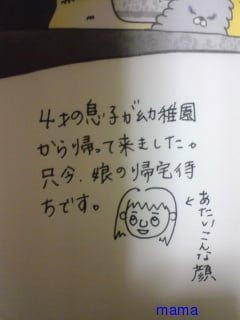 4才の息子が幼稚園
から帰って来ました。
只今、娘の帰宅待
ちです。
←あたいこんな顔
mama